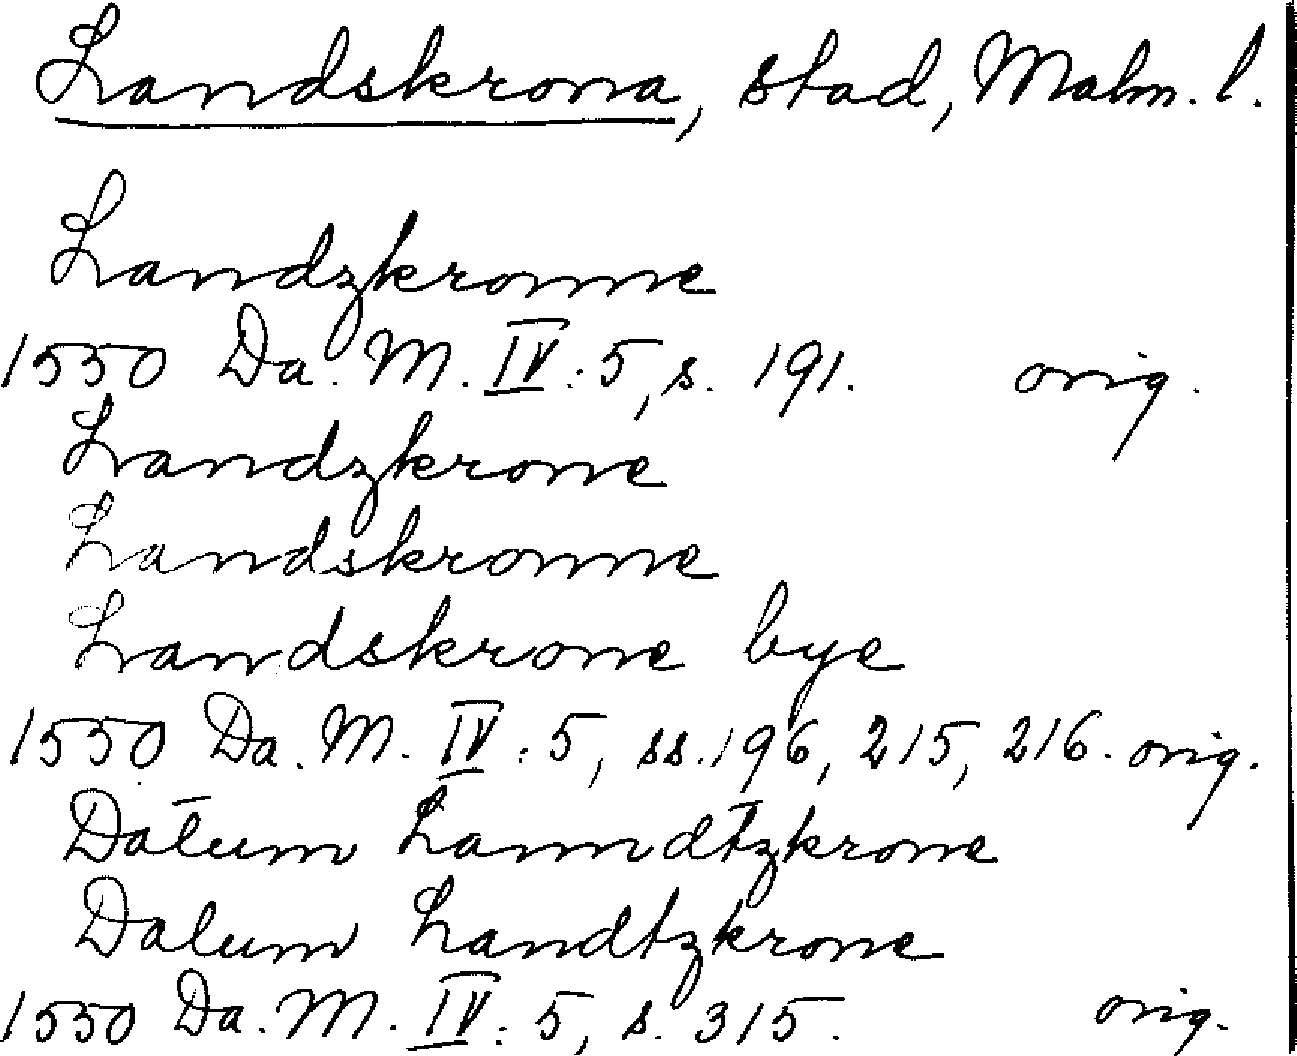 Landskrona, stad, Malm. l.
Landzkronne
1550 Da. M. IV: 5, s. 191. orig.
Landzkrone
Landskronne
Landskrone bye
1550 Da. M. IV: 5, ss. 196, 215, 216. orig.
Datum Lanndtzkrone
Datum Landtzkrone
1550 Da. M. IV: 5, s. 315. orig.